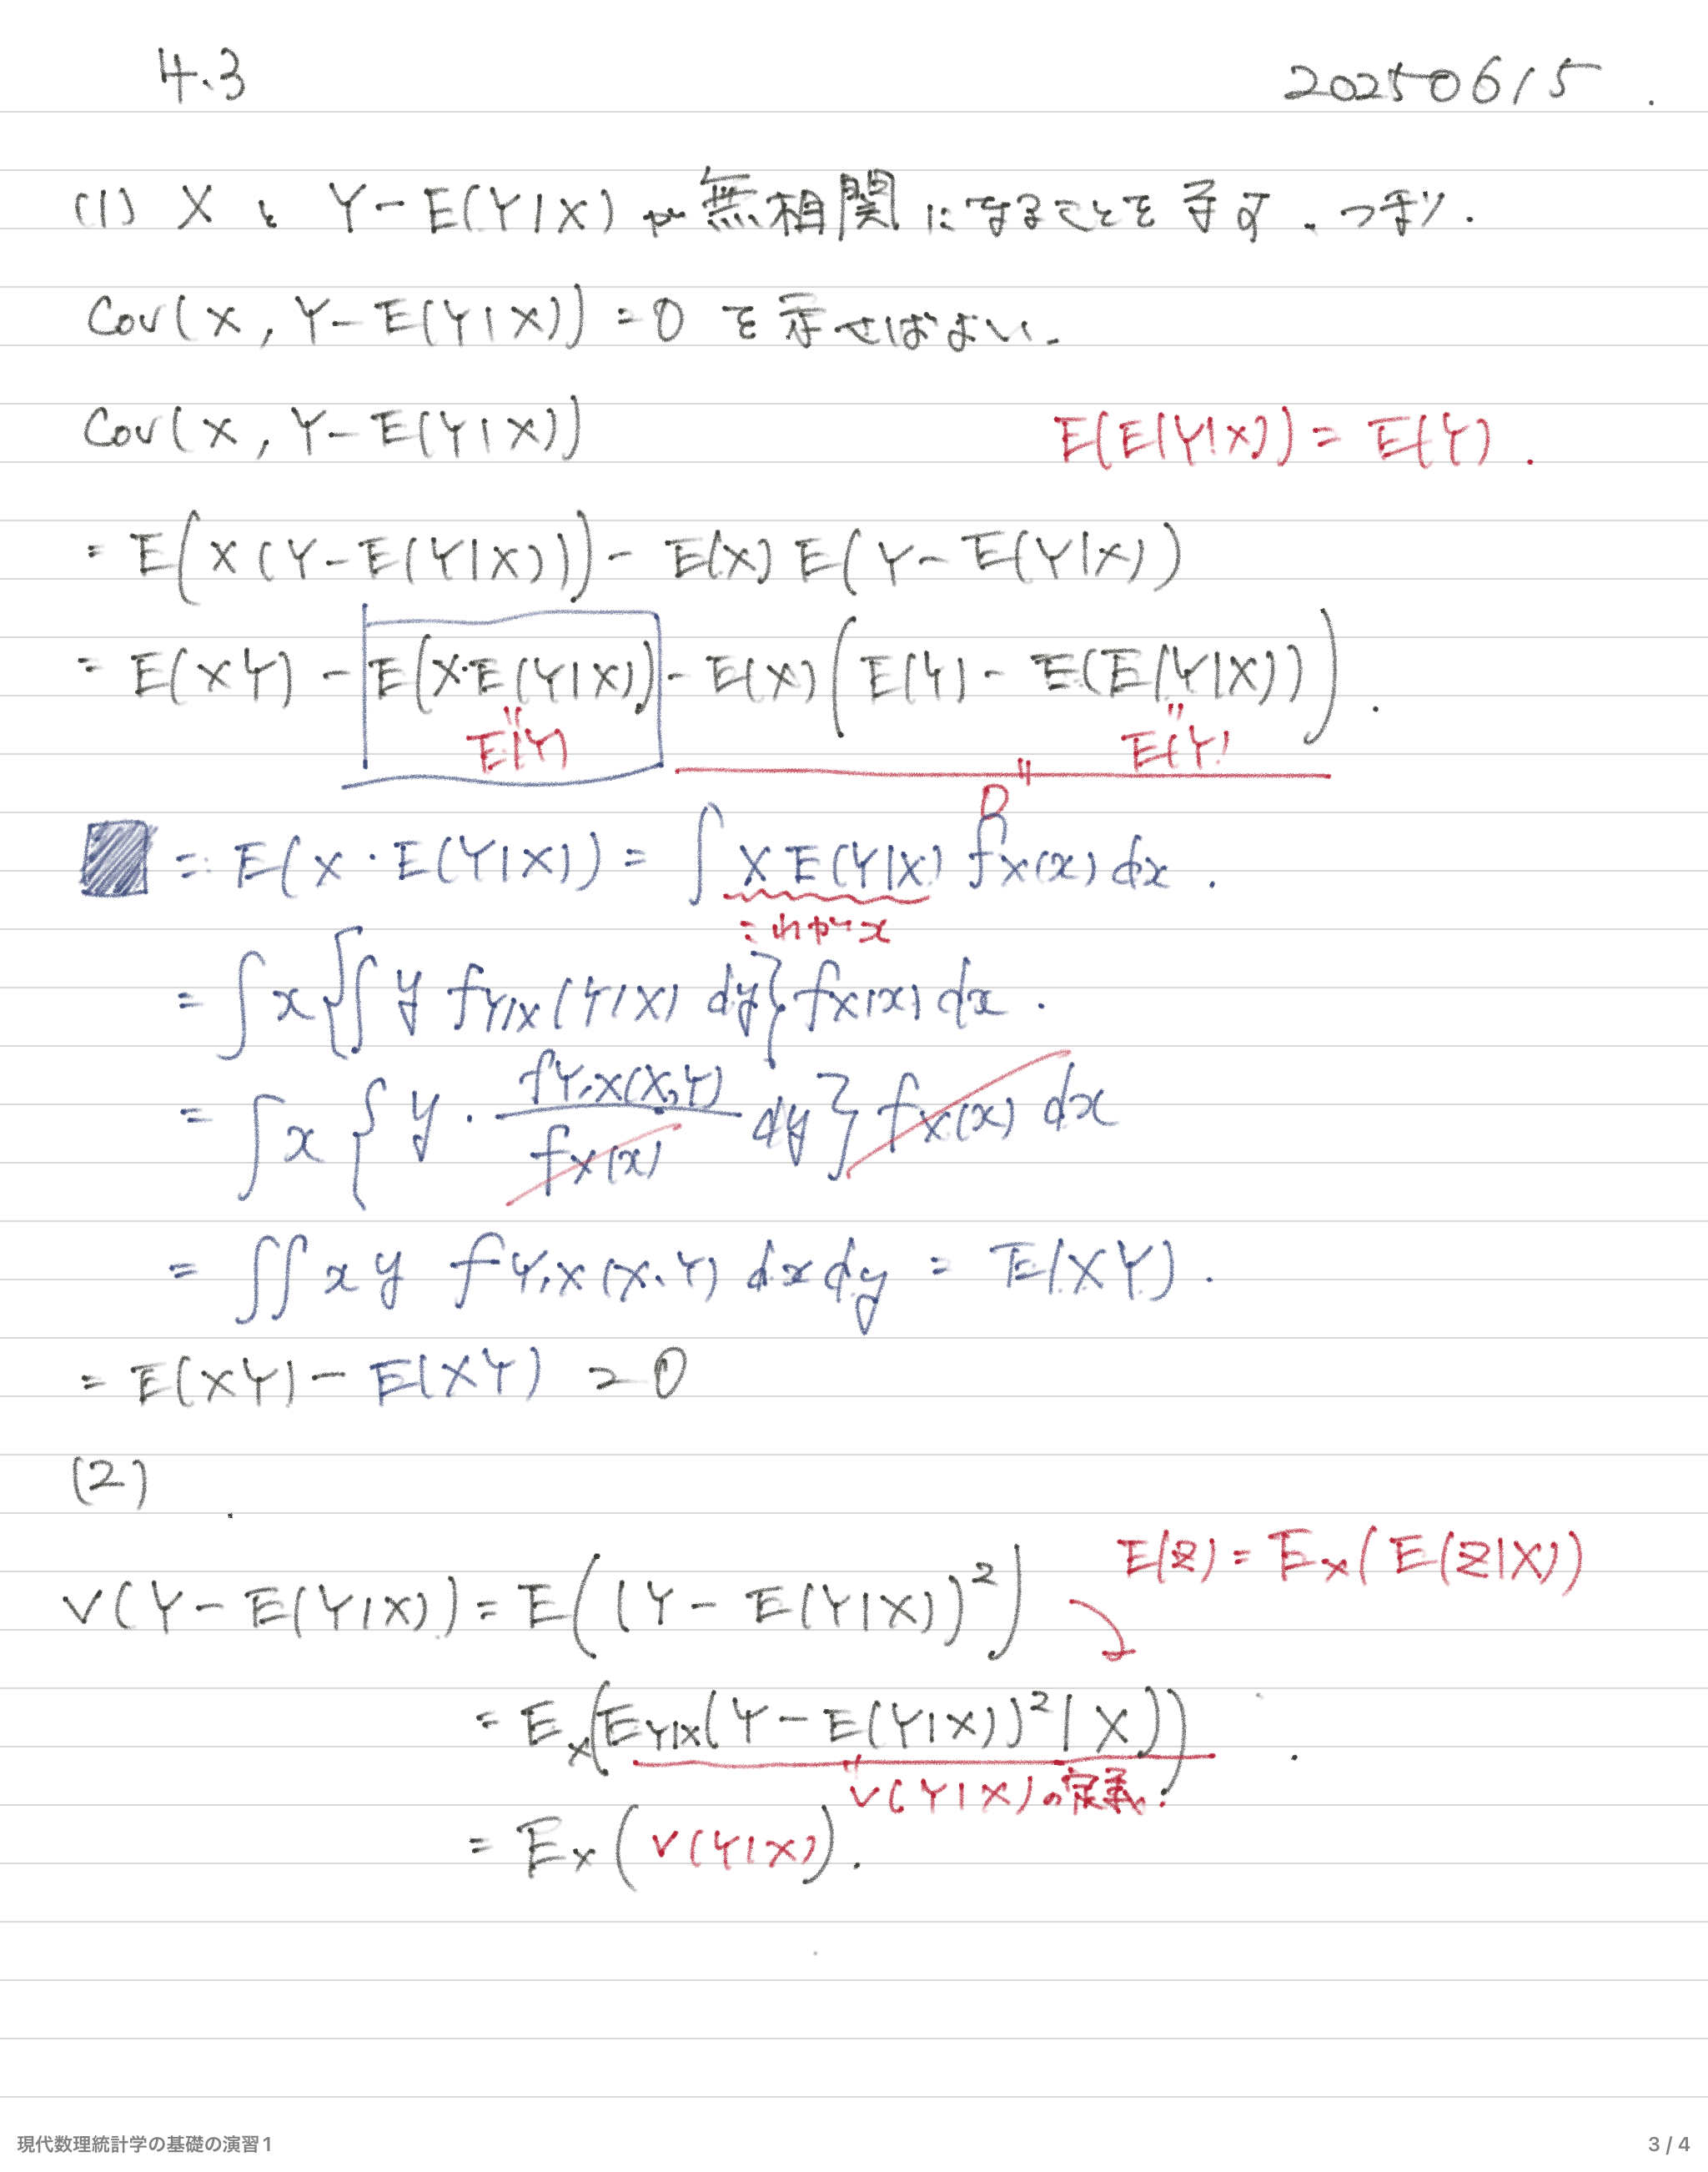 4.3 20250615.
(1) X と Y-E(Y|X) が 無相関 になることを 示す、つまり.
Cov(X, Y-E(Y|X)) = 0 を示せばよい.
Cov(X, Y-E(Y|X)) E(E(Y|X)) = E(Y).
= E(X(Y-E(Y|X))) - E(X)E(Y-E(Y|X))
= E(XY) - E(X·E(Y|X)) - E(X)(E(Y) - E(E(Y|X))).
" E(Y) " E(Y)
" 0
= E(X·E(Y|X)) = ∫ X E(Y|X) fX(x) dx.
これが x
= ∫ x {∫ y fY|X(Y|X) dy} fX(x) dx.
= ∫ x { y · fY,X(X,Y) / fX(x) dy} fX(x) dx
= ∬ x y fY,X(X,Y) dx dy = E(XY).
= E(XY) - E(XY) = 0
(2)
E(Z) = EX(E(Z|X))
V(Y-E(Y|X)) = E((Y-E(Y|X))²)
= EX(EY|X(Y-E(Y|X))²|X))
" V(Y|X)の定義.
= EX(V(Y|X)).
現代数理統計学の基礎の演習1 3 / 4